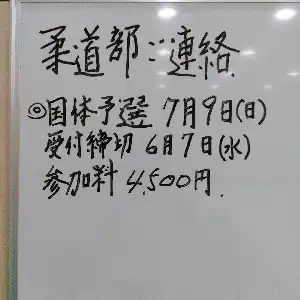 柔道部ご連絡
◎国体予選 7月9日(日)
受付締切 6月7日(水)
参加料 4,500円.